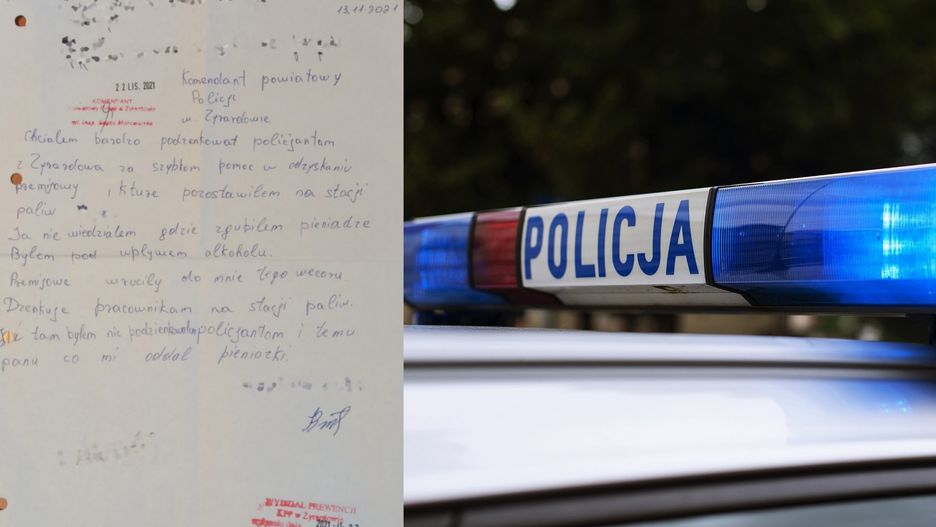 13.11.2021
22 LIS. 2021
Komendant powiatowy
Policji
w. Żyrardowie
KOMENDANT
Chciałem bardzo podzenkować policjantom
z Żyrardowa za szybkom pomoc w odzyskaniu
Premijowy i kture pozostawiłem na stacji
paliw
Ja nie wiedziałem gdzie zgubiłem pieniadze
Byłem pod wpływem alkoholu.
Premijowe wrociły do mnie tego wecoru
Dzenkuje pracownikam na stacji paliw.
tam byłem nie podzienkowałem policjantom i temu
panu co mi oddał pieniożki.
WYDZIAŁ PREWENCJI
KPP w Żyrardowie
POLICJA